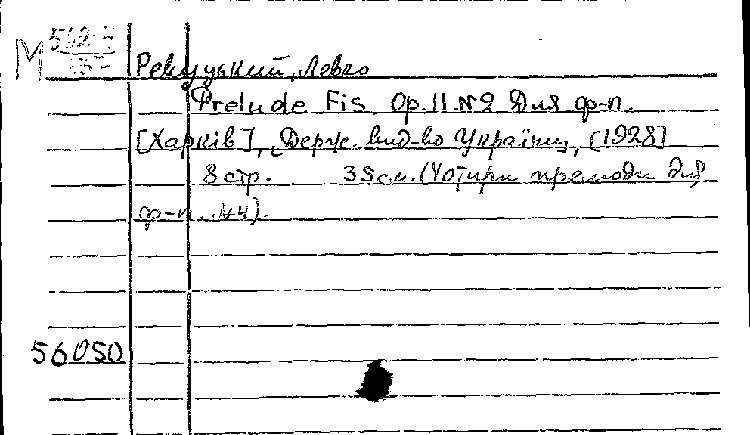 М
Ревуцький, Левко
Prelude Fis Op. 11 №2 Для ф-п.
[Харків], Держ. вид-во України, [1928]
8 стр. 35 см. (Чотири прелюди для
ф-п. №4).
56050